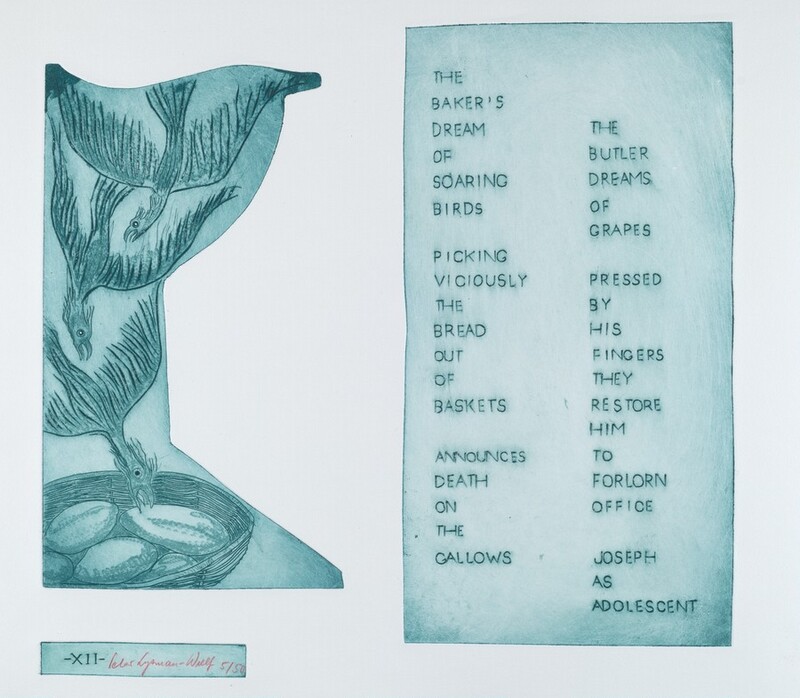 THE
BAKER'S
DREAM
OF
SOARING
BIRDS
PICKING
VICIOUSLY
THE
BREAD
OUT
OF
BASKETS
ANNOUNCES
DEATH
ON
THE
GALLOWS
THE
BUTLER
DREAMS
OF
GRAPES
PRESSED
BY
HIS
FINGERS
THEY
RESTORE
HIM
TO
FORLORN
OFFICE
JOSEPH
AS
ADOLESCENT
-XII- 5/50